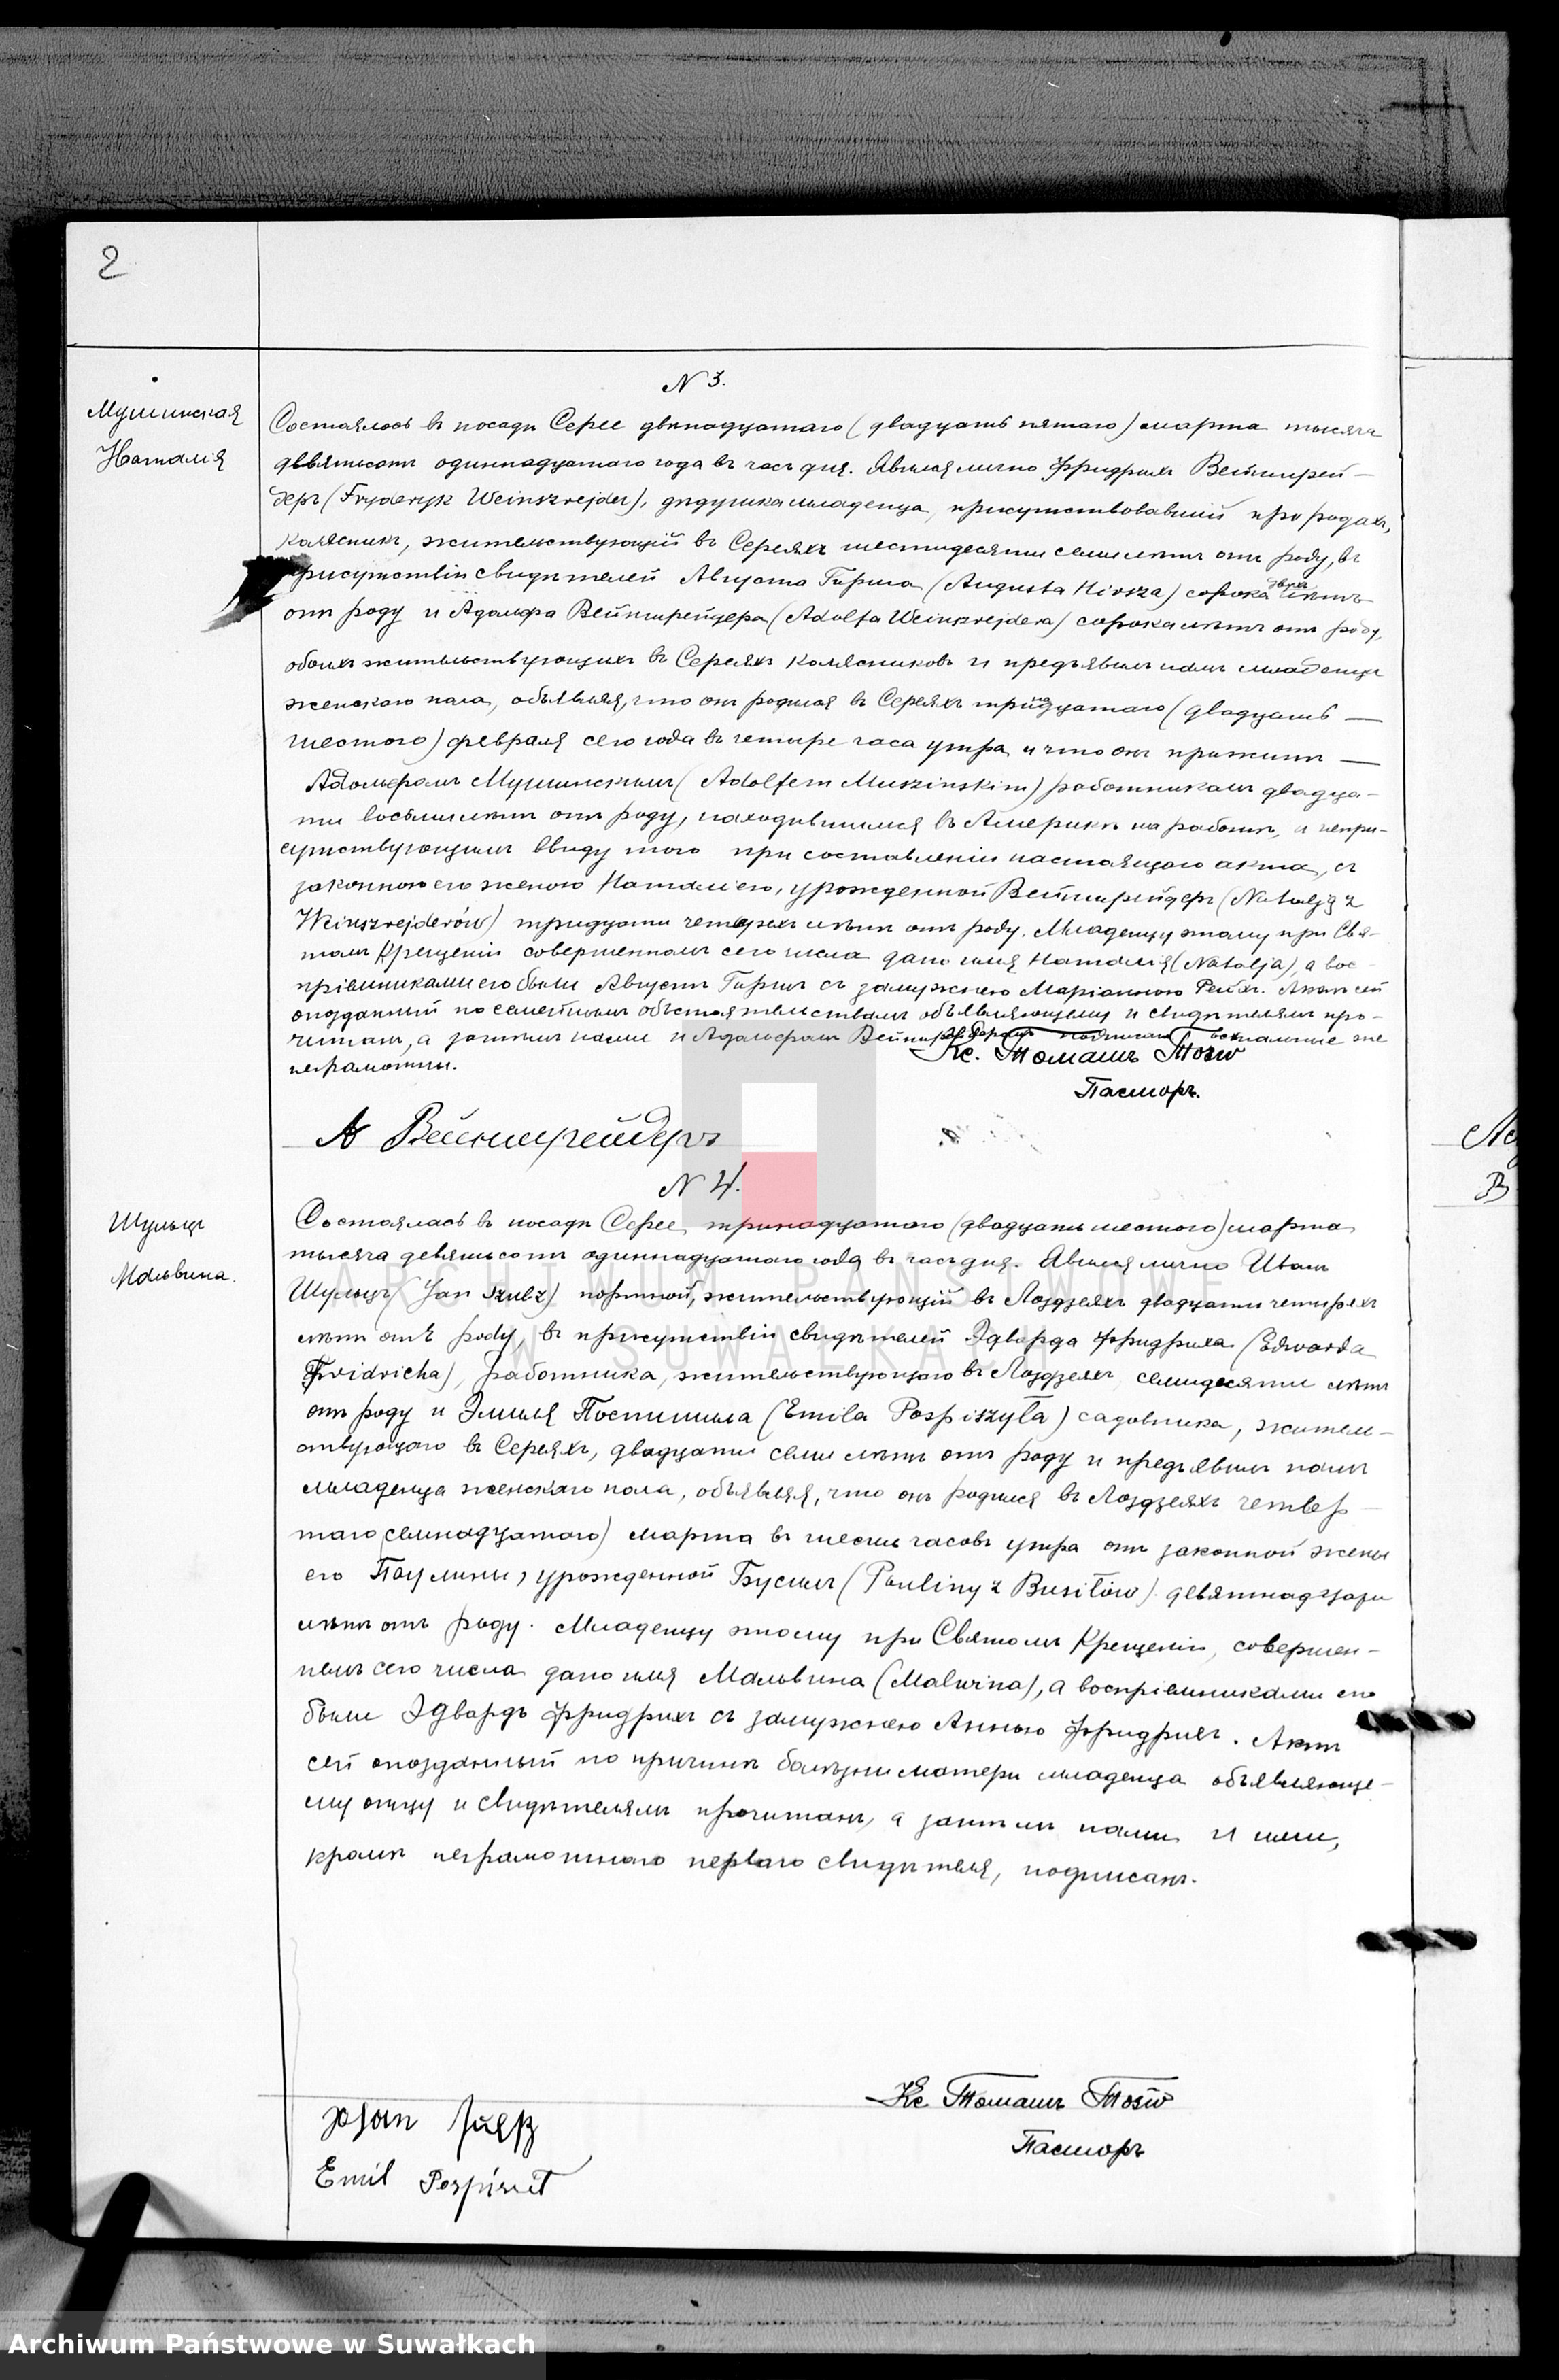 2
N 3.
Мушинская
Наталія
Состоялось въ посадѣ Сереѣ двѣнадцатаго (двадцать пятаго) марта тысяча
девятьсотъ одиннадцатаго года въ часъ дня. Явился лично Фридрихъ Вейншрей-
деръ (Fryderyk Weinszrejder), дѣдушка младенца, присутствовавшій при родахъ,
колясникъ, жительствующій въ Сереяхъ шестидесяти семи лѣтъ отъ роду, въ
присутствіи свидѣтелей Августа Гирша (Augusta Hirsza) сорока двухъ лѣтъ
отъ роду и Адольфа Вейншрейдера (Adolfa Weinszrejdera) сорока лѣтъ отъ роду,
обоихъ жительствующихъ въ Сереяхъ колясниковъ и предъявилъ намъ младенца
женскаго пола, объявляя, что онъ родился въ Сереяхъ тринадцатаго (двадцать —
шестого) февраля сего года въ четыре часа утра и что онъ прижитъ —
Адольфомъ Мушинскимъ (Adolfem Muszinskim) работникомъ двадца-
ти восьми лѣтъ отъ роду, находившимся въ Америкѣ на работѣ, и непри-
сутствующимъ ввиду того при составленіи настоящаго акта, съ
законною его женою Наталіею, урожденной Вейншрейдеръ (Natalją z
Weinszrejderów) тридцати четырехъ лѣтъ отъ роду. Младенцу этому при Свя-
томъ Крещеніи совершенномъ сего числа дано имя Наталія (Natalja), а вос-
пріемниками его были Августъ Гиршъ съ замужнею Маріанною Рейхъ. Актъ сей
опозданный по семейнымъ обстоятельствамъ объявляющему и свидѣтелямъ про-
читанъ, а затѣмъ нами и Адольфомъ Вейншрейдеромъ подписанъ остальные же
неграмотны.
Кс. Томашъ Тозю
Пасторъ.
А Вейншрейдеръ
N 4.
Шульцъ
Мальвина.
Состоялось въ посадѣ Сереѣ, тринадцатаго (двадцать шестого) марта
тысяча девятьсотъ одиннадцатаго года въ часъ дня. Явился лично Иванъ
Шульцъ (Jan Szulz) портной, жительствующій въ Лоздзеяхъ двадцати четырехъ
лѣтъ отъ роду, въ присутствіи свидѣтелей Эдварда Фридриха (Edwarda
Fridricha), работника, жительствующаго въ Лоздзеяхъ, семидесяти лѣтъ
отъ роду и Эмиля Поспишила (Emila Pospiszyła) садовника, житель-
ствующаго въ Сереяхъ, двадцати семи лѣтъ отъ роду и предъявилъ намъ
младенца женскаго пола, объявляя, что онъ родился въ Лоздзеяхъ четвер-
таго (семнадцатаго) марта въ шесть часовъ утра отъ законной жены
его Паулины, урожденной Бусилъ (Pauliny z Busiłów) девятнадцати
лѣтъ отъ роду. Младенцу этому при Святомъ Крещеніи, совершен-
немъ сего числа дано имя Мальвина (Malwina), а воспріемниками его
были Эдвардъ Фридрихъ съ замужнею Анною Фридрихъ. Актъ
сей опозданный по причинѣ болѣзни матери младенца объявляюще-
му отцу и свидѣтелямъ прочитанъ, а затѣмъ нами и ими,
кромѣ неграмотнаго перваго свидѣтеля, подписанъ.
Кс. Томашъ Тозю
Пасторъ
Emil Pospisził
ARCHIWUM PAŃSTWOWE
W SUWAŁKACH
Archiwum Państwowe w Suwałkach